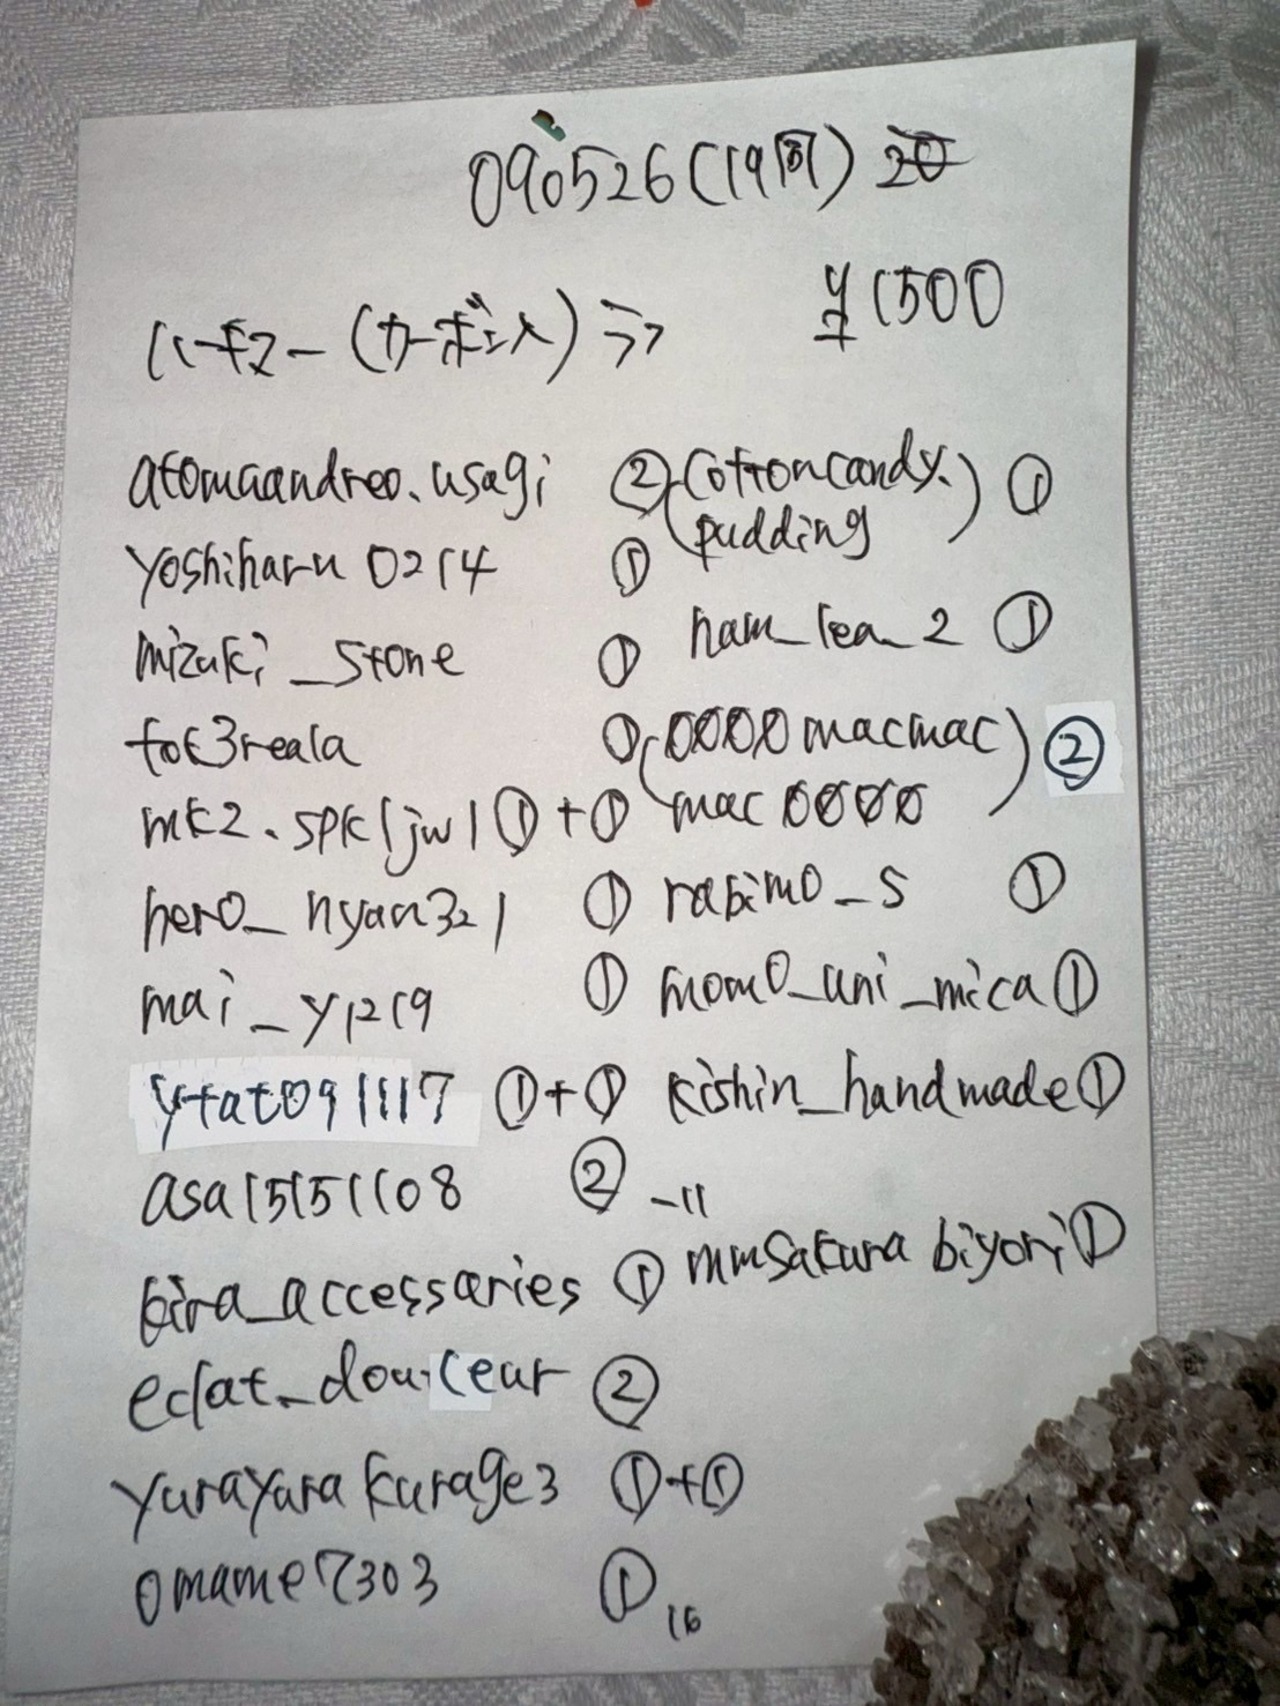 090526(19周) 20
¥1500
ハーキマー(カーボン入)
atomaandreo.usagi ②
yoshiharu0214 ①
mizuki_stone ①
tok3reala ①
mk2.spkljw1 ①+①
hero_nyan321 ①
mai_y1219 ①
ytat091117 ①+①
asa15151108 ②
kira_accessaries ①
eclat_douceur ②
yurayurakurage3 ①+①
omame7303 ①
16
(cottoncandy.
pudding) ①
ham_lea_2 ①
(0000macmac
mac0000) ②
rabimo_s ①
momo_uni_mica ①
kishin_handmade ①
-11
mmsakura biyori ①